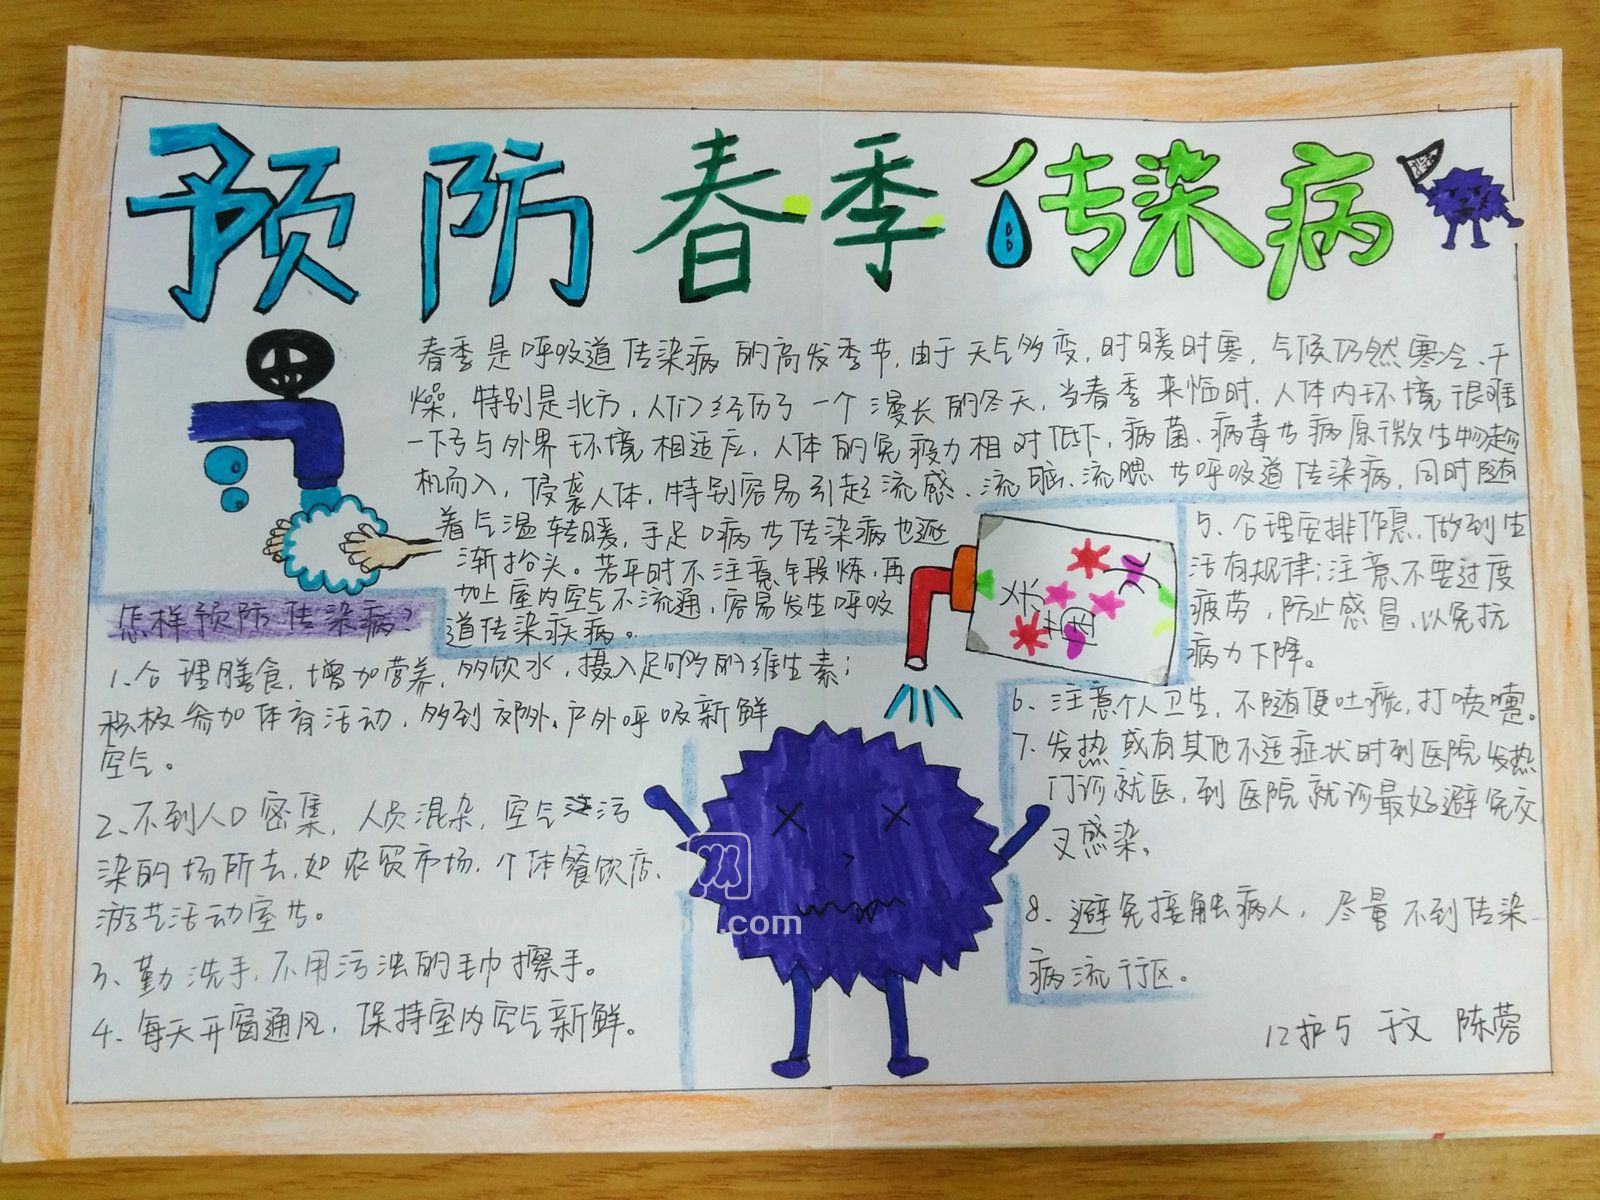 预防春季传染病
春季是呼吸道传染病的高发季节,由于天气多变,时暖时寒,气候仍然寒冷、干
燥,特别是北方,人们经历了一个漫长的冬天,当春季来临时,人体内环境很难
一下子与外界环境相适应,人体的免疫力相对低下,病菌、病毒等病原微生物趁
机而入,侵袭人体,特别容易引起流感、流脑、流腮等呼吸道传染病,同时随
着气温转暖,手足口病等传染病也逐
渐抬头。若平时不注意锻炼,再
加上室内空气不流通,容易发生呼吸
道传染疾病。
怎样预防传染病?
1、合理膳食,增加营养,多饮水,摄入足够的维生素;
积极参加体育活动,多到郊外、户外呼吸新鲜
空气。
2、不到人口密集,人员混杂,空气污
染的场所去,如农贸市场、个体餐饮店、
游艺活动室等。
3、勤洗手,不用污浊的毛巾擦手。
4、每天开窗通风,保持室内空气新鲜。
杀菌
5、合理安排作息,做到生
活有规律;注意不要过度
疲劳,防止感冒,以免抗
病力下降。
6、注意个人卫生,不随便吐痰,打喷嚏。
7、发热或有其他不适症状时到医院发热
门诊就医,到医院就诊最好避免交
叉感染。
8、避免接触病人,尽量不到传染
病流行区。
12护5 于文 陈蓉